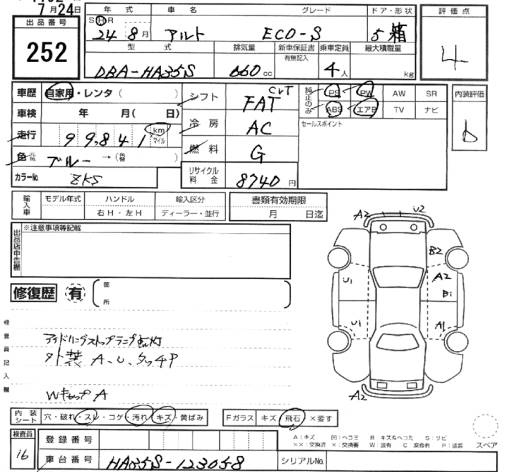 7月24日
出品番号
252
年式 車名 グレード ドア・形状
S H R
24 8月 アルト ECO-S 5 箱
型式 排気量 新車保証書 乗車定員 最大積載量
有無記入
DBA-HA35S 660cc 4人 kg
評価点
4
車歴 自家用・レンタ( )
車検 年 月( 日)
走行 99,841 km マイル
色 ブルー →( )
カラーNo ZKS
シフト CVT FAT
冷房 AC
燃料 G
リサイクル料金 8740円
純正のみ PS PW AW SR
ABS エアB TV ナビ
セールスポイント
内装評価
b
輸入車 モデル年式 ハンドル 輸入区分
右H・左H ディーラー・並行
書類有効期限
月 日迄
出品店申告欄 ※注意事項等記載
修復歴 有 箇所
検査員記入欄
アイドリングストップランプ点灯
外装 A、U、タッチP
Wキャップ A
A2 U2
B2
U1 A2
B1
U1 A1
A2
内装シート 穴・破れ・スレ・コゲ・汚れ・キズ・黄ばみ
Fガラス キズ・飛石 ×要す
A:キズ
スペア
検査員
16
登録番号
車台番号 HA35S-123058
シリアルNo.